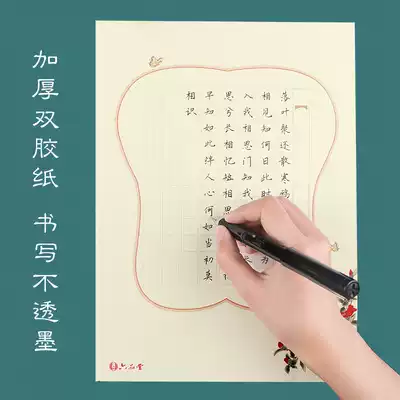 加厚双胶纸
书写不透墨
落叶聚还散寒鸦
相相见知何日此时
入我相思门知我
思兮长相忆短相思
早知如此绊人心何如当初莫
相识
六品堂